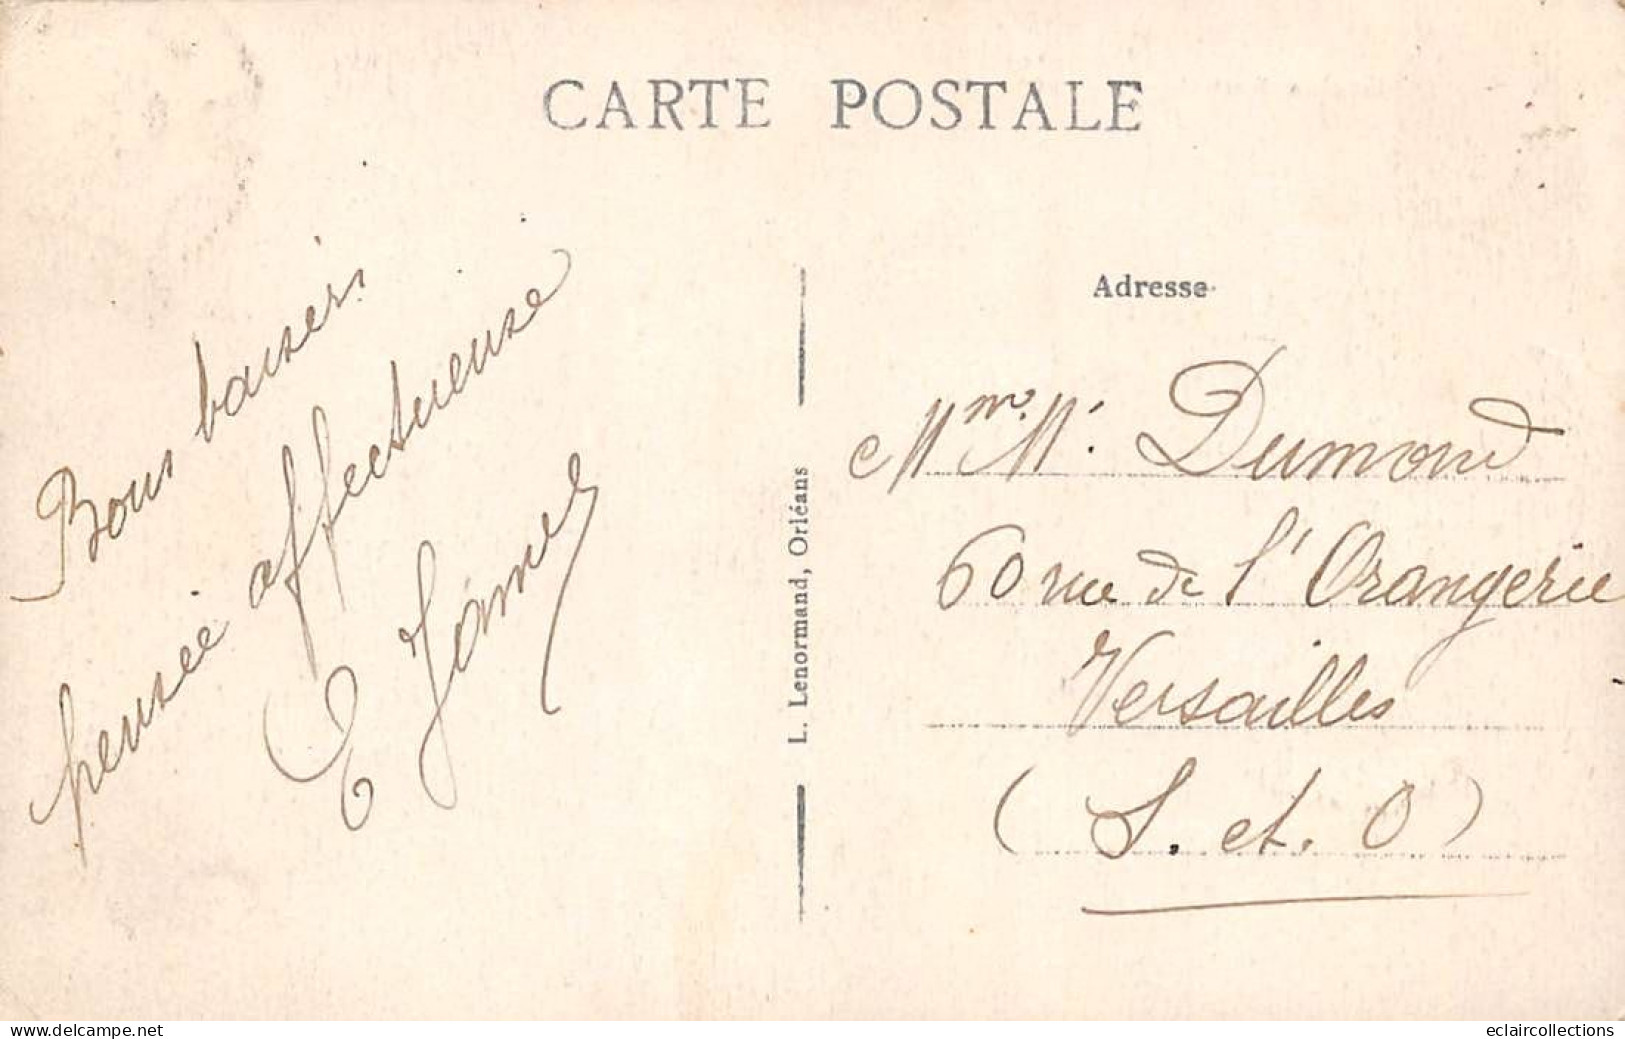 CARTE POSTALE
Bons baisers
pensée affectueuse
E
L. Lenormand, Orléans
Adresse
Mme M. Dumond
60 rue de l'Orangerie
Versailles
(S. et. O)
www.delcampe.net
eclaircollections